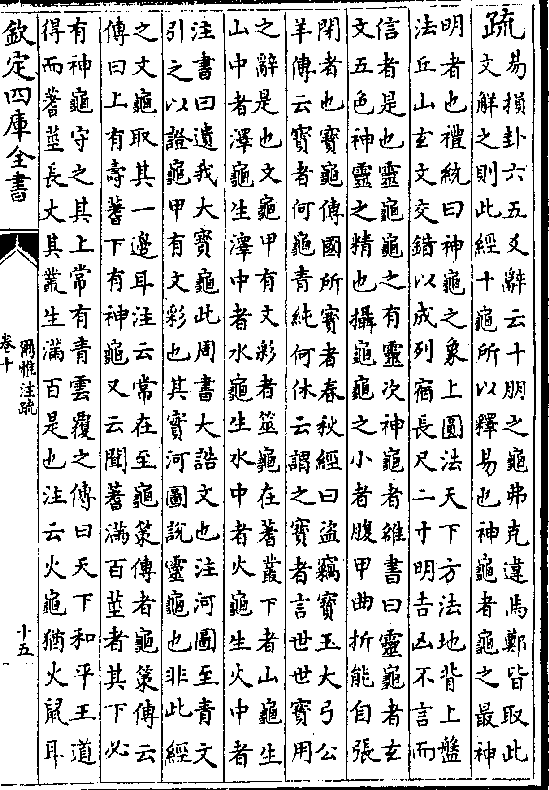 疏易損卦六五爻辭云十朋之龜弗克違馬鄭皆取此
文解之則此經十龜所以釋易也神龜者龜之最神
明者也禮統曰神龜之象上圓法天下方法地背上盤
法丘山玄文交錯以成列宿長尺二寸明吉凶不言而
信者是也靈龜龜之有靈次神龜者雒書曰靈龜者玄
文五色神靈之精也攝龜龜之小者腹甲曲折能自張
閉者也寶龜傳國所寶者春秋經曰盜竊寶玉大弓公
羊傳云寶者何龜青純何休云謂之寶者言世世寶用
之辭是也文龜甲有文彩者筮龜在蓍叢下者山龜生
山中者澤龜生澤中者水龜生水中者火龜生火中者
注書曰遺我大寶龜此周書大誥文也注河圖至青文
引之以證龜甲有文彩也其實河圖說靈龜也非此經
之文龜取其一邊耳注云常在至龜策傳者龜策傳云
傳曰上有壽蓍下有神龜又云聞蓍滿百莖者其下必
有神龜守之其上常有青雲覆之傳曰天下和平王道
得而蓍莖長丈其叢生滿百是也注云火龜猶火鼠耳
欽定四庫全書
爾雅注疏
卷十
十五